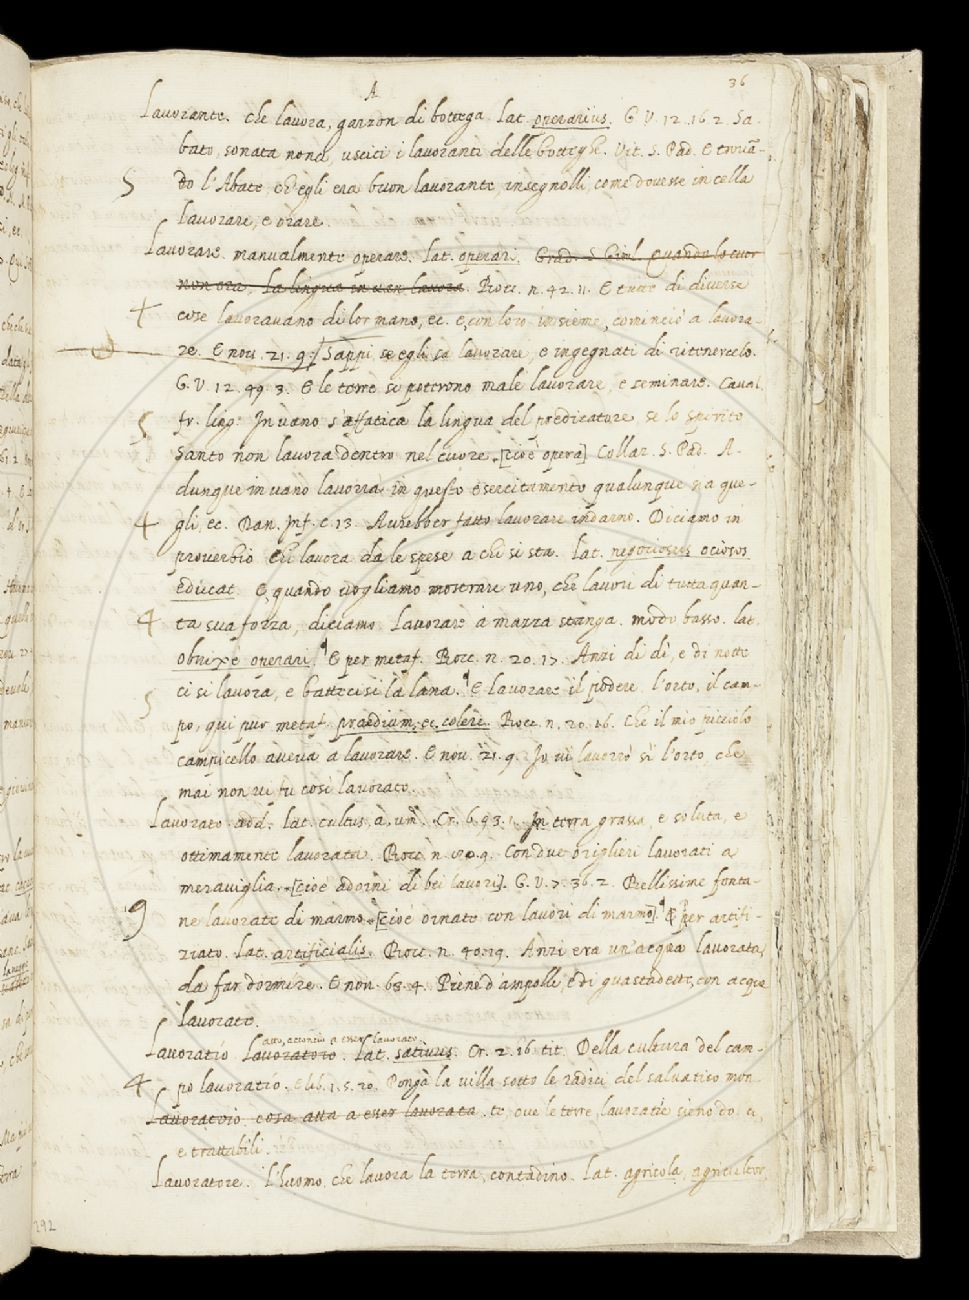 A
36
Lavorante. che lavora, garzon di bottega. Lat. operarius. G. V. 12. 16. 2. Sa-
bato, sonata nona, usciti i lavoranti delle botteghe. Vit. S. Pad. E trovã-
5 do l'Abate, ch'egli era buon lavorante, insegnolli, come dovesse in cella
lavorare, e orare.
Lavorare. manualmente operare. Lat. operari. Grad. S. Girol. Quando lo cuor
non ora, la lingua in van lavora. Bocc. n. 42. 11. E tutte di diverse
+ cose lavoravano di lor mano, ec. e, con loro insieme, cominciò a lavora-
re. E nov. 21. 9. Sappi se egli sa lavorare, e ingegnati di ritenercelo.
G. V. 12. 49. 3. E le terre si potterono male lavorare, e seminare. Caval.
5 fr. ling. In vano s'affatica la lingua del predicatore se lo spirito
santo non lavora dentro nel cuore. [cioè opera] Collaz. S. Pad. A-
dunque in vano lavorra in questo esercitamento qualunque s'a que-
4 gli ec. Dan. Inf. c. 13. Avrebber fatto lavorare indarno. Diciamo in
proverbio Chi lavora da le spese a chi si sta. Lat. negociosus ociosos
educat. E, quando vogliamo mostrare uno, che lavori di tutta quan-
4 ta sua forza, diciamo Lavorare à mazza stanga. modo basso. lat.
obnixè operari. E per metaf. Bocc. n. 20. 17. Anzi di dì, e di notte
ci si lavora, e battecisi la lana. E lavorare il podere l'orto, il cam-
5 po, qui pur metaf. praedium, ec. colere. Bocc. n. 20. 16. Che il mio picciolo
campicello aveva a lavorare. E nov. 21. 9. Io vi lavorrò sì l'orto, che
mai non vi fu così lavorato.
Lavorato. add. Lat. cultus, à, um. Cr. 6. 93. 1. In terra grassa, e soluta, e
ottimamente lavorata. Bocc. n. 80. 9. Con due origlieri lavorati a
meraviglia. [cioè adorni di bei lavori]. G. V. 7. 36. 2. Bellissime fonta-
9 ne lavorate di marmo. [cioè ornate con lavori di marmo] E per artifi-
ziato. Lat. artificialis. Bocc. n. 40. 19. Anzi era un'acqua lavorata,
da far dormire. E non. 68. 4. Piene d'ampolle, e di guastadette, con acque
lavorate.
atto, acconcio a esser lavorato.
Lavoratio. Lavoratoro. Lat. sativus. Cr. 2. 16. tit. Della cultura del cam-
4 po lavoratio. E lib. 1. 5. 20. Ponga la villa sotto le radici del salvatico mon
Lavoratoio cosa atta a esser lavorata. te, ove le terre lavoratie sieno dolci,
e trattabili.
Lavoratore. L'huomo, che lavora la terra, contadino. Lat. agricola, agricultor
292